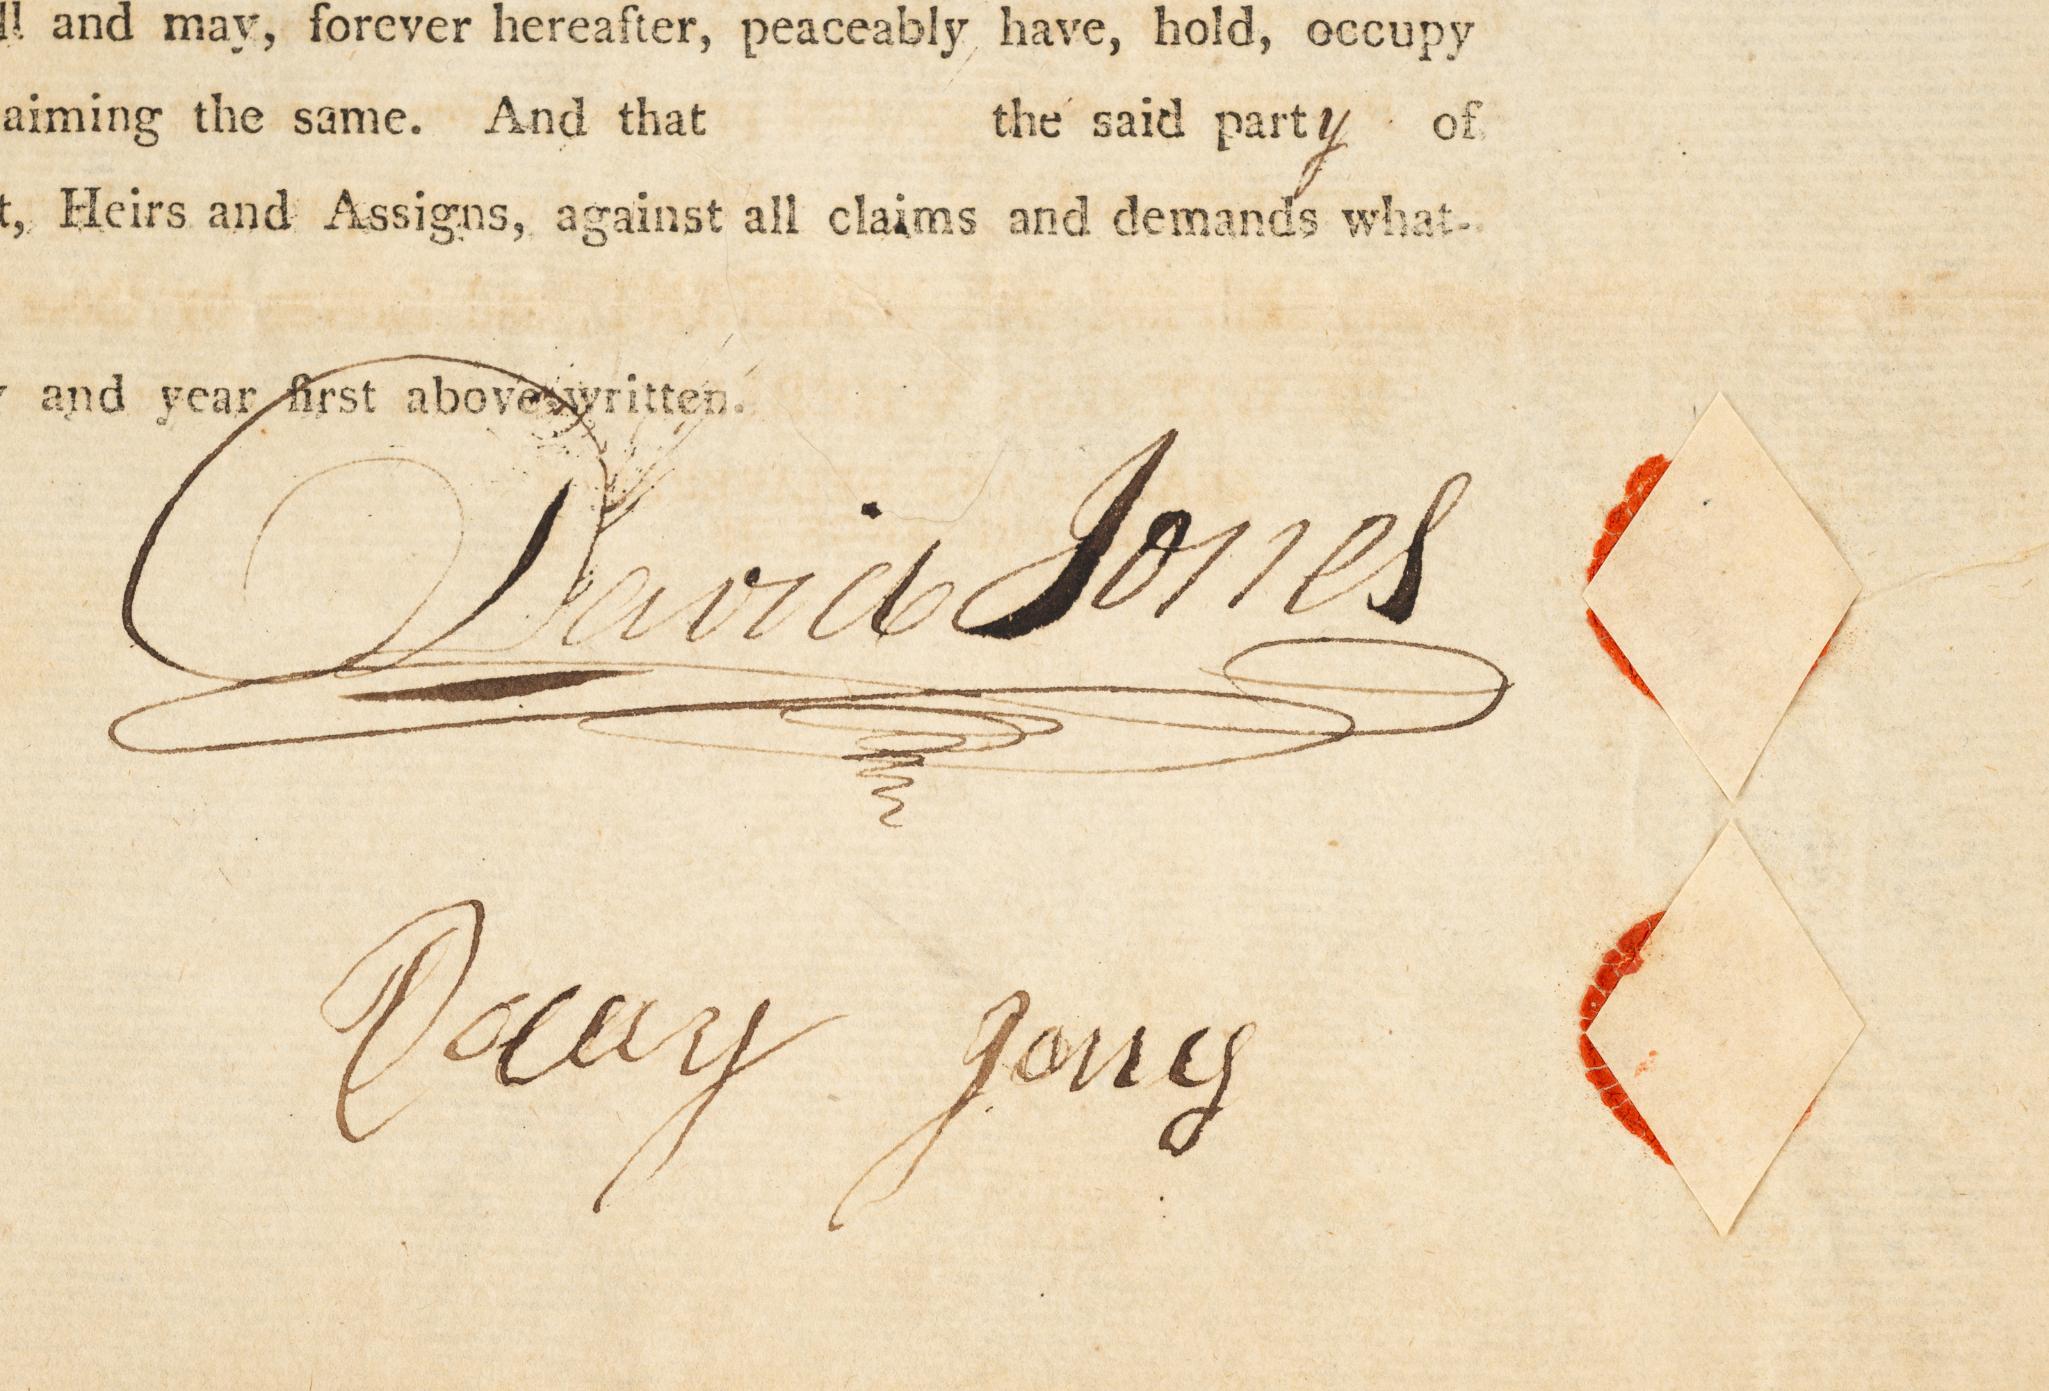 ll and may, forever hereafter, peaceably have, hold, occupy
aiming the same. And that the said party of
t, Heirs and Assigns, against all claims and demands what-
y and year first above-written.
David Jones
Jones